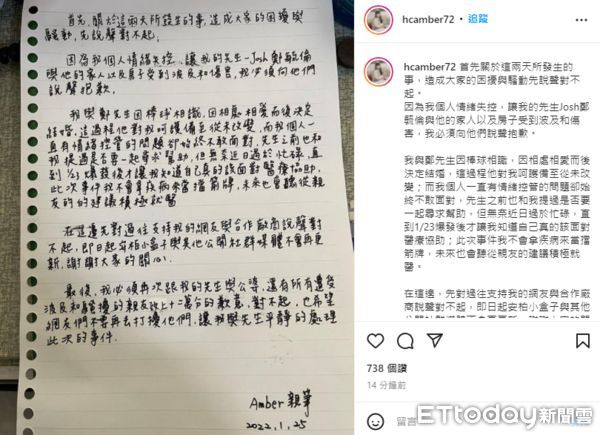 首先,關於這兩天所發生的事,造成大家的困擾與
騷動,先說聲對不起,
因為我個人情緒失控,讓我的先生-Josh鄭毓倫
與他的家人以及房子受到波及和傷害,我必須向他們
說聲抱歉.
我與鄭先生因棒球相識,因相處相愛而後決定
結婚,這過程他對我呵護備至從未改變,而我個人一
直有情緒控管的問題卻始終不敢面對,先生之前也和
我提過是否要一起尋求幫助,但無奈近日過於忙碌,直到
1/23爆發後才讓我知道自己真的該面對醫療協助,
此次事件我不會拿疾病來當擋箭牌,未來也會聽從親
友的建議積極就醫
在這邊先對過往支持我的網友與合作廠商說聲對
不起,即日起安柏小盒子與其他公開社群媒體不會再更
新,謝謝大家的關心.
最後,我必須再次跟我的先生與公婆,還有所有遭受
波及和騷擾的親友致上十二萬分的歉意,對不起,也希望
網友們不要再去打擾他們,讓我與先生平靜的處理
此次的事件.
Amber 親筆
2022.1.25
hcamber72 • 追蹤
hcamber72 首先關於這兩天所發生的
事,造成大家的困擾與騷動先說聲對不
起。
因為我個人情緒失控,讓我的先生Josh鄭
毓倫與他的家人以及房子受到波及和傷
害,我必須向他們說聲抱歉。
我與鄭先生因棒球相識,因相處相愛而後
決定結婚,這過程他對我呵護備至從未改
變;而我個人一直有情緒控管的問題卻始
終不敢面對,先生之前也和我提過是否要
一起尋求幫助,但無奈近日過於忙碌,直
到1/23爆發後才讓我知道自己真的該面對
醫療協助;此次事件我不會拿疾病來當擋
箭牌,未來也會聽從親友的建議積極就
醫。
在這邊,先對過往支持我的網友與合作廠
商說聲對不起,即日起安柏小盒子與其他
738 個讚
14 分鐘前
留言
ETtoday新聞雲